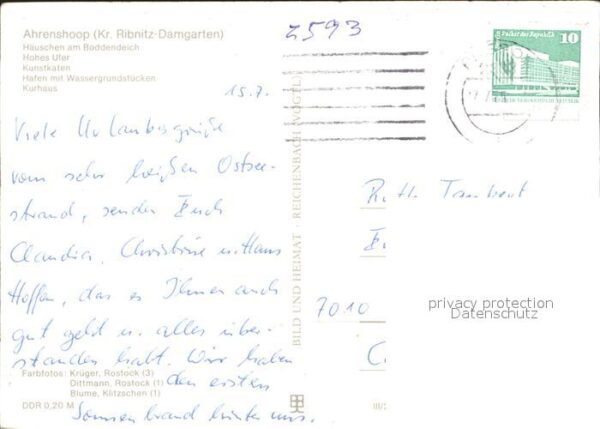 Ahrenshoop (Kr. Ribnitz-Damgarten)
Häuschen am Boddendeich
Hohes Ufer
Kunstkaten
Hafen mit Wassergrundstücken
Kurhaus
2593
10
15.7.
Viele Urlaubsgrüße
vom sehr heißen Ostsee-
strand, senden Euch
Claudia, Christine u. Hans
Hoffen, das es Ihnen auch
gut geht u. alles über-
standen habt. Wir haben
den ersten
Sonnenbrand hinter uns.
Farbfotos: Krüger, Rostock (3)
Dittmann, Rostock (1)
Blume, Klitzschen (1)
DDR 0,20 M
BILD UND HEIMAT · REICHENBACH (VOGTL)
7010
privacy protection
Datenschutz